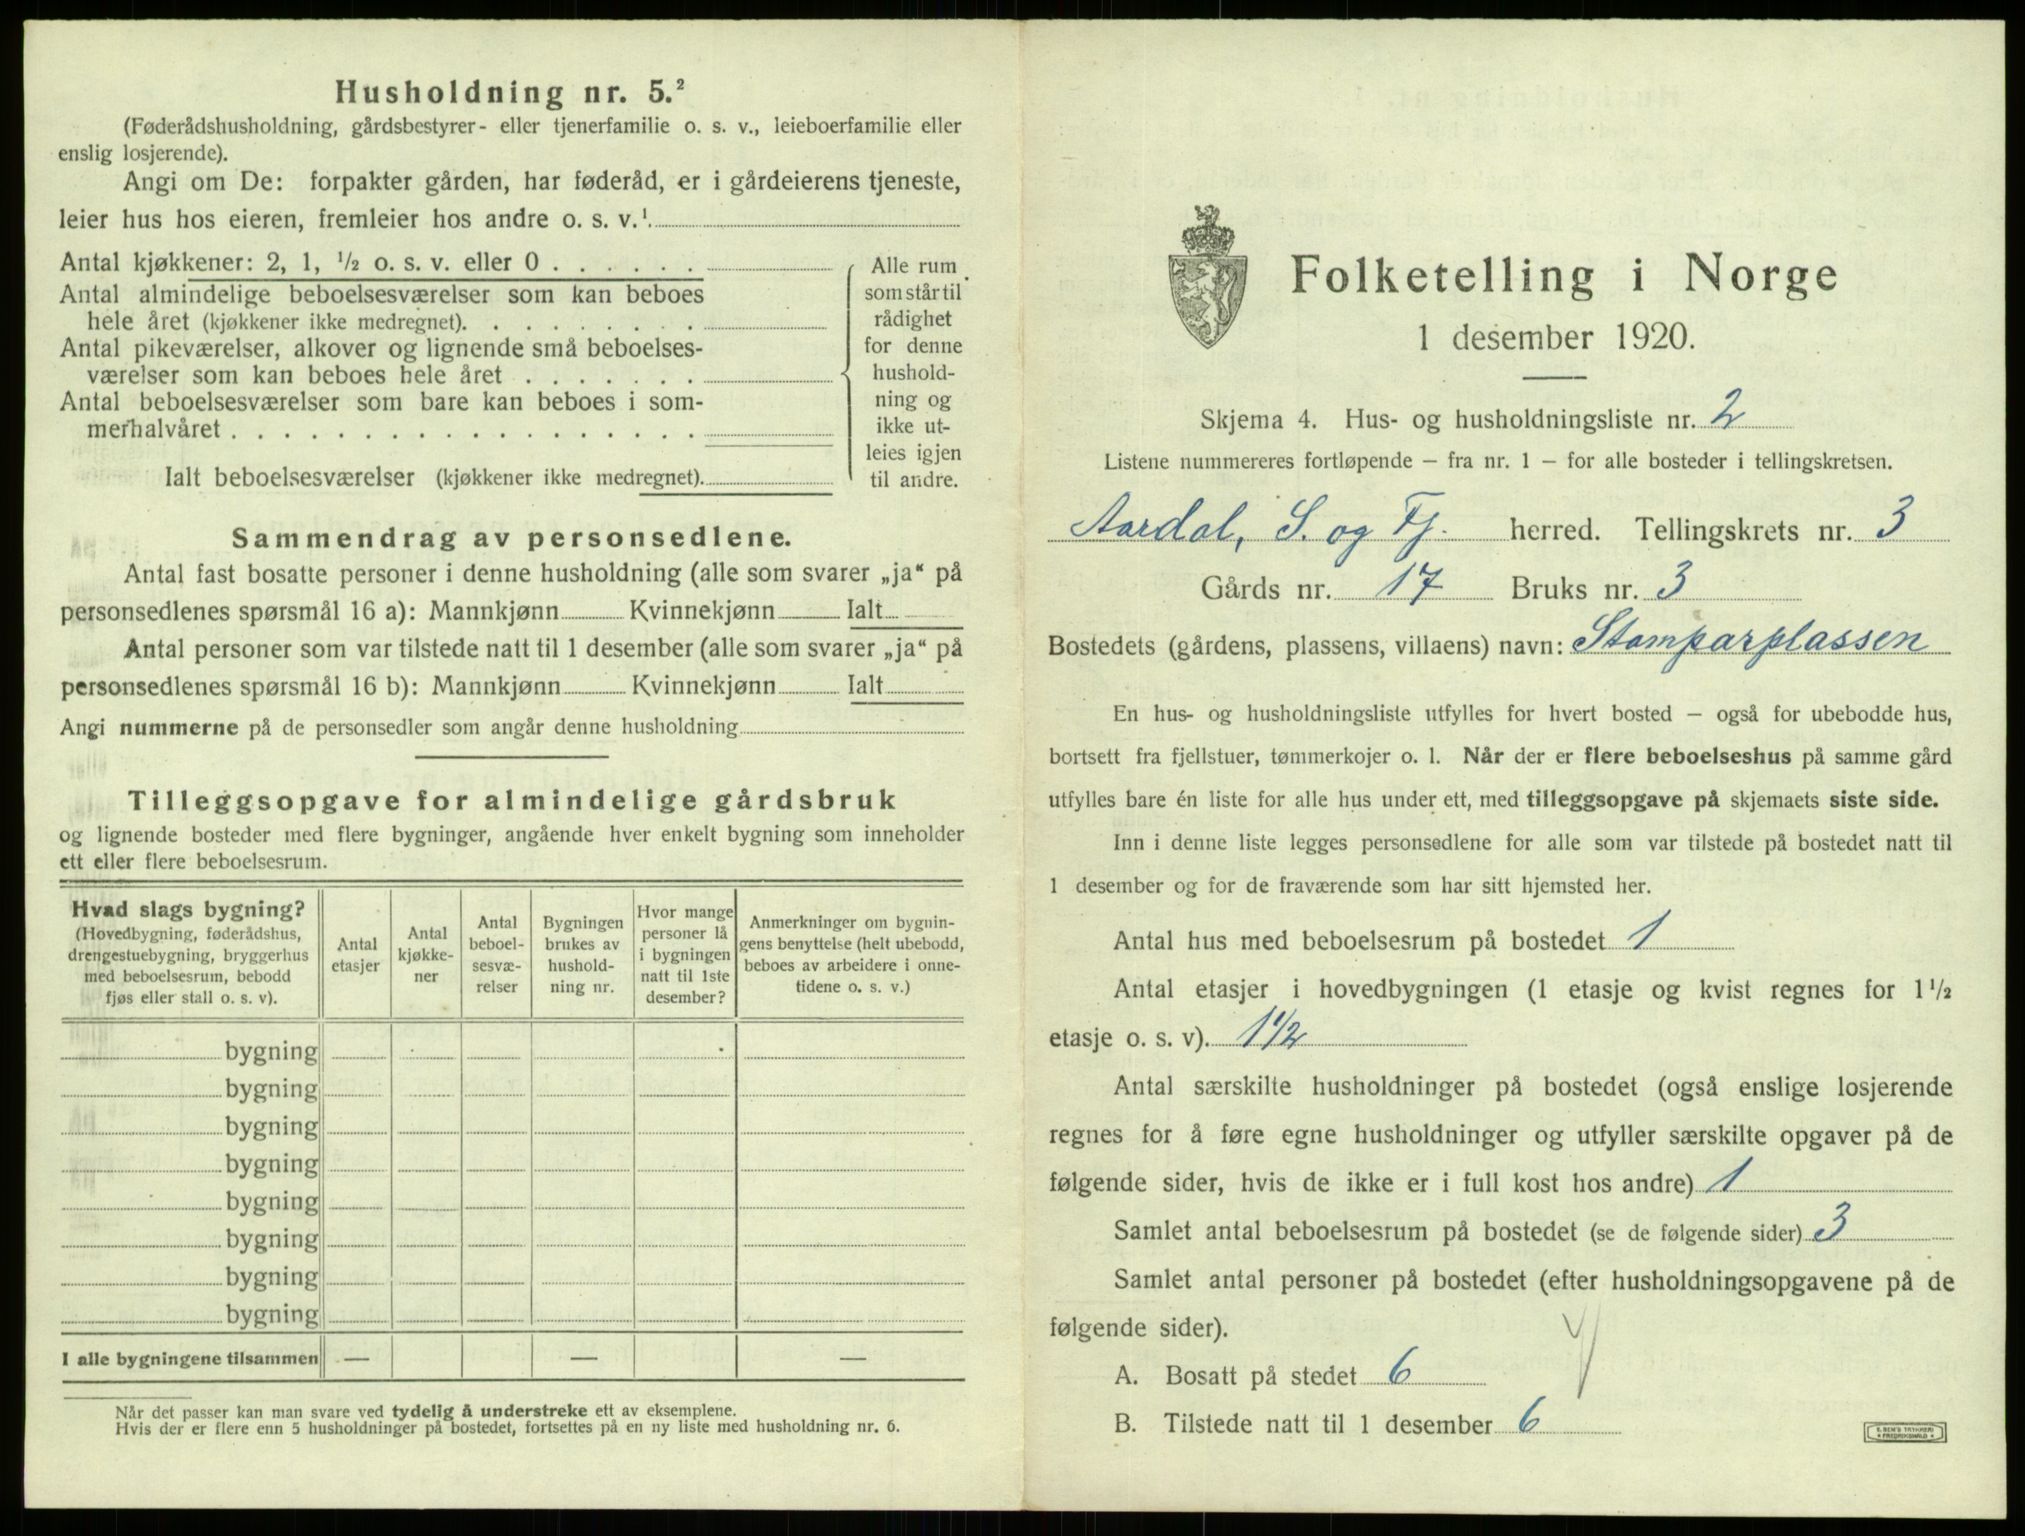 Husholdning nr. 5.²
(Føderådshusholdning, gårdsbestyrer- eller tjenerfamilie o. s. v., leieboerfamilie eller
enslig losjerende).
Angi om De: forpakter gården, har føderåd, er i gårdeierens tjeneste,
leier hus hos eieren, fremleier hos andre o. s. v.¹
Antal kjøkkener: 2, 1, ½ o. s. v. eller 0 . . . . . .
Antal almindelige beboelsesværelser som kan beboes
hele året (kjøkkener ikke medregnet). . . . . . . . .
Antal pikeværelser, alkover og lignende små beboelses-
værelser som kan beboes hele året . . . . . . .
Antal beboelsesværelser som bare kan beboes i som-
merhalvåret . . . . . . . . . . . . . . . . . .
Ialt beboelsesværelser (kjøkkener ikke medregnet).
Alle rum
som står til
rådighet
for denne
hushold-
ning og
ikke ut-
leies igjen
til andre.
Sammendrag av personsedlene.
Antal fast bosatte personer i denne husholdning (alle som svarer „ja“ på
personsedlenes spørsmål 16 a): Mannkjønn Kvinnekjønn Ialt
Antal personer som var tilstede natt til 1 desember (alle som svarer „ja“ på
personsedlenes spørsmål 16 b): Mannkjønn Kvinnekjønn Ialt
Angi nummerne på de personsedler som angår denne husholdning
Tilleggsopgave for almindelige gårdsbruk
og lignende bosteder med flere bygninger, angående hver enkelt bygning som inneholder
ett eller flere beboelsesrum.
Hvad slags bygning?
(Hovedbygning, føderådshus,
drengestuebygning, bryggerhus
med beboelsesrum, bebodd
fjøs eller stall o. s. v).
Antal
etasjer
Antal
kjøkke-
ner
Antal
beboel-
sesvæ-
relser
Bygningen
brukes av
hushold-
ning nr.
Hvor mange
personer lå
i bygningen
natt til 1ste
desember?
Anmerkninger om bygnin-
gens benyttelse (helt ubebodd,
beboes av arbeidere i onne-
tidene o. s. v.)
bygning
bygning
bygning
bygning
bygning
bygning
bygning
bygning
I alle bygningene tilsammen — — —
Når det passer kan man svare ved tydelig å understreke ett av eksemplene.
Hvis der er flere enn 5 husholdninger på bostedet, fortsettes på en ny liste med husholdning nr. 6.
Folketelling i Norge
1 desember 1920.
Skjema 4. Hus- og husholdningsliste nr. 2
Listene nummereres fortløpende – fra nr. 1 – for alle bosteder i tellingskretsen.
Aardal, S. og Fj. herred. Tellingskrets nr. 3
Gårds nr. 17 Bruks nr. 3
Bostedets (gårdens, plassens, villaens) navn: Stamparplassen
En hus- og husholdningsliste utfylles for hvert bosted – også for ubebodde hus,
bortsett fra fjellstuer, tømmerkojer o. l. Når der er flere beboelseshus på samme gård
utfylles bare én liste for alle hus under ett, med tilleggsopgave på skjemaets siste side.
Inn i denne liste legges personsedlene for alle som var tilstede på bostedet natt til
1 desember og for de fraværende som har sitt hjemsted her.
Antal hus med beboelsesrum på bostedet 1
Antal etasjer i hovedbygningen (1 etasje og kvist regnes for 1½
etasje o. s. v). 1½
Antal særskilte husholdninger på bostedet (også enslige losjerende
regnes for å føre egne husholdninger og utfyller særskilte opgaver på de
følgende sider, hvis de ikke er i full kost hos andre) 1
Samlet antal beboelsesrum på bostedet (se de følgende sider) 3
Samlet antal personer på bostedet (efter husholdningsopgavene på de
følgende sider).
A. Bosatt på stedet 6
B. Tilstede natt til 1 desember 6